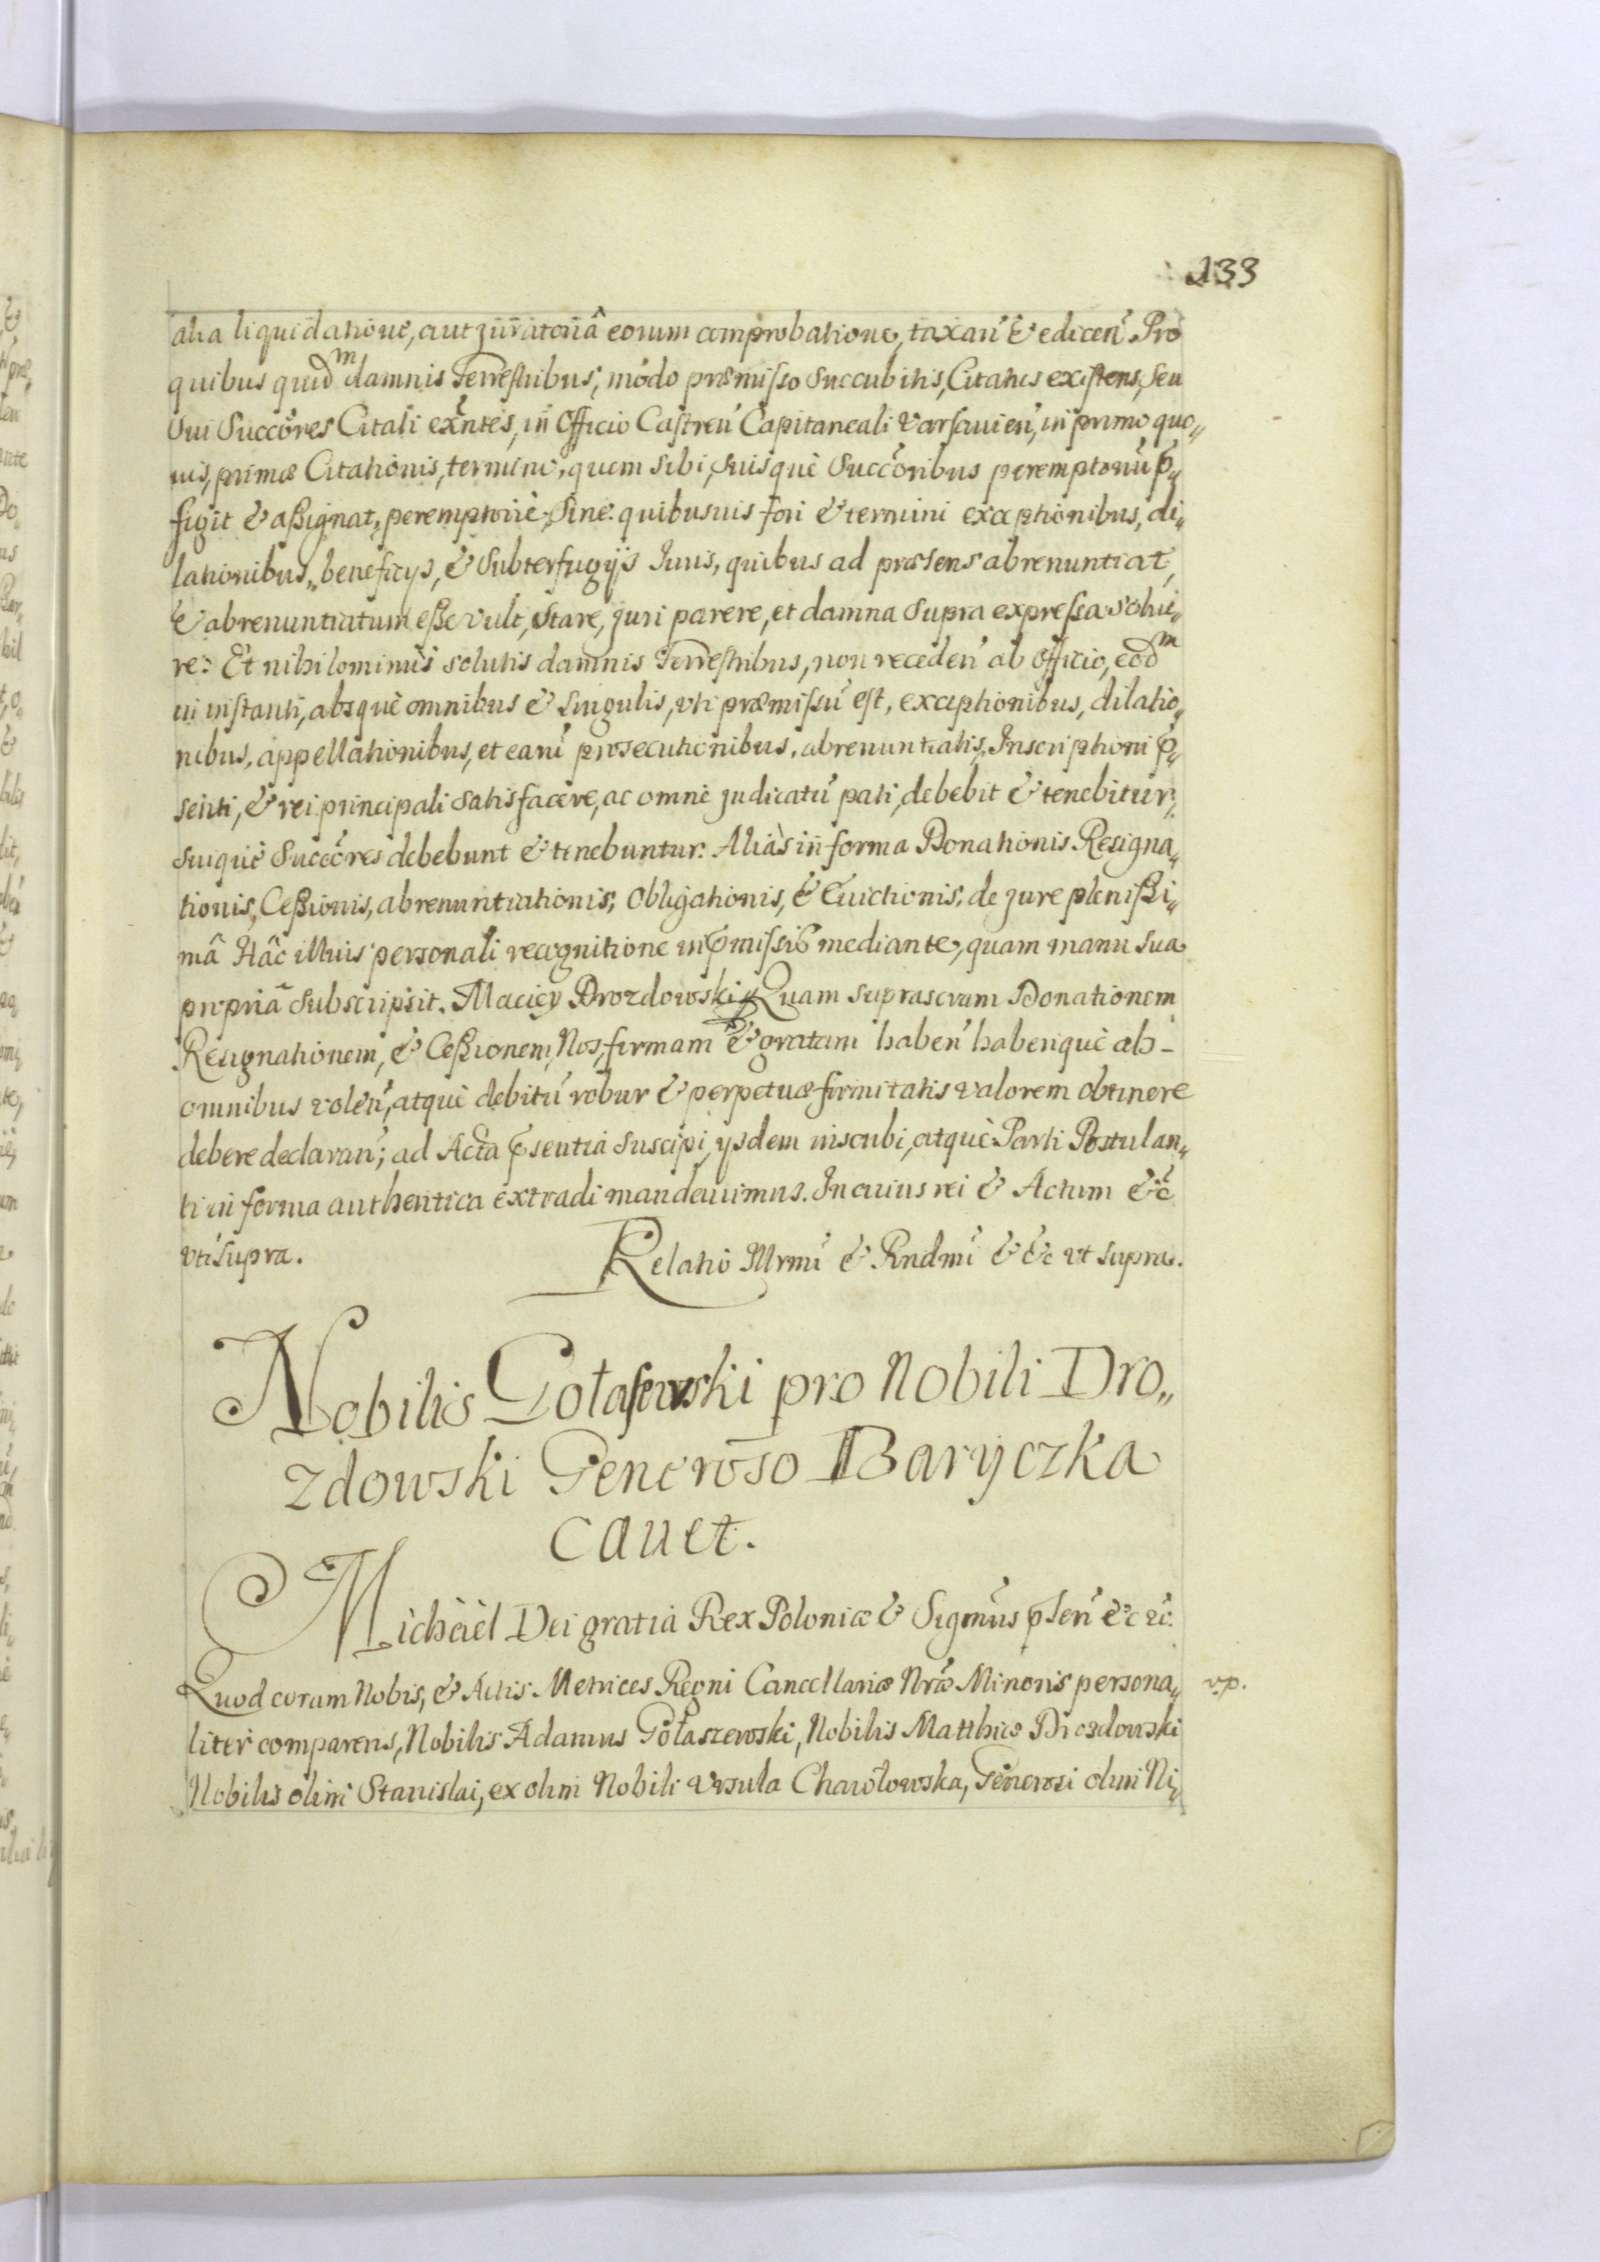 133
alia liquidatione, aut juratoriâ eorum comprobatione, taxan̄ & edicen̄. Pro
quibus quidᵐ damnis Terrestribus, modo præmisso succubitis, Citatus existens, seu
sui Succōres Citati exn̄tes, in Officio Castren̄ Capitaneali Varsavien̄, in primo quo„
vis, primæ Citationis, termino, quem sibi, suisque Succōribus peremptoriū p„
figit & assignat, peremptorie, sine quibusvis fori & termini exceptionibus, di„
lationibus, beneficys, & subterfugijs Iuris, quibus ad præsens abrenuntiat,
& abrenuntiatum esse vult, stare, juri parere, et damna supra expressa solve„
re: Et nihilominus solutis damnis Terrestribus, non receden̄ ab Officio, eodᵐ
in instanti, absque omnibus & singulis, uti præmissū est, exceptionibus, dilatio„
nibus, appellationibus, et earū prosecutionibus, abrenuntiatis, Inscriptioni p„
senti, & rei principali satisfacere, ac omne judicatū pati, debebit & tenebitur,
suique Succōres debebunt & tenebuntur. Aliàs in forma Donationis Resigna„
tionis, Cessionis, abrenuntiationis, Obligationis, & Evictionis, de jure plenissi„
mâ Hâc illius personali recognitione in p̄missis mediante, quam manu sua
propriâ subscripsit. Maciey Drozdowski. Quam suprascriam Donationem
Resignationem, & Cessionem, Nos, firmam & gratam haben̄ haberique ab
omnibus volen̄, atque debitū robur & perpetuæ firmitatis valorem obtinere
debere declaran̄; ad Acta p̄sentia suscipi, ysdem inscribi, atque Parti Postulan„
ti in forma authentica extradi mandavimus. In cuius rei & Actum &c̄
uti supra. Relatio Illrmī & Rndmī & &c ut supra.
Nobilis Gołaszewski pro Nobili Dro„
zdowski Generoso Baryczka
cavet.
Michäel Dei gratia Rex Poloniæ & Sigm̄us p̄sen̄ &c &c.
Quod coram Nobis, & Actis Metrices Regni Cancellariæ Nrǣ Minoris persona„
v.p.
liter comparens, Nobilis Adamus Gołaszewski, Nobilis Matthiæ Drozdowski
Nobilis olim Stanislai, ex olim Nobili Ursula Chawłowska, Generosi olim Ni„